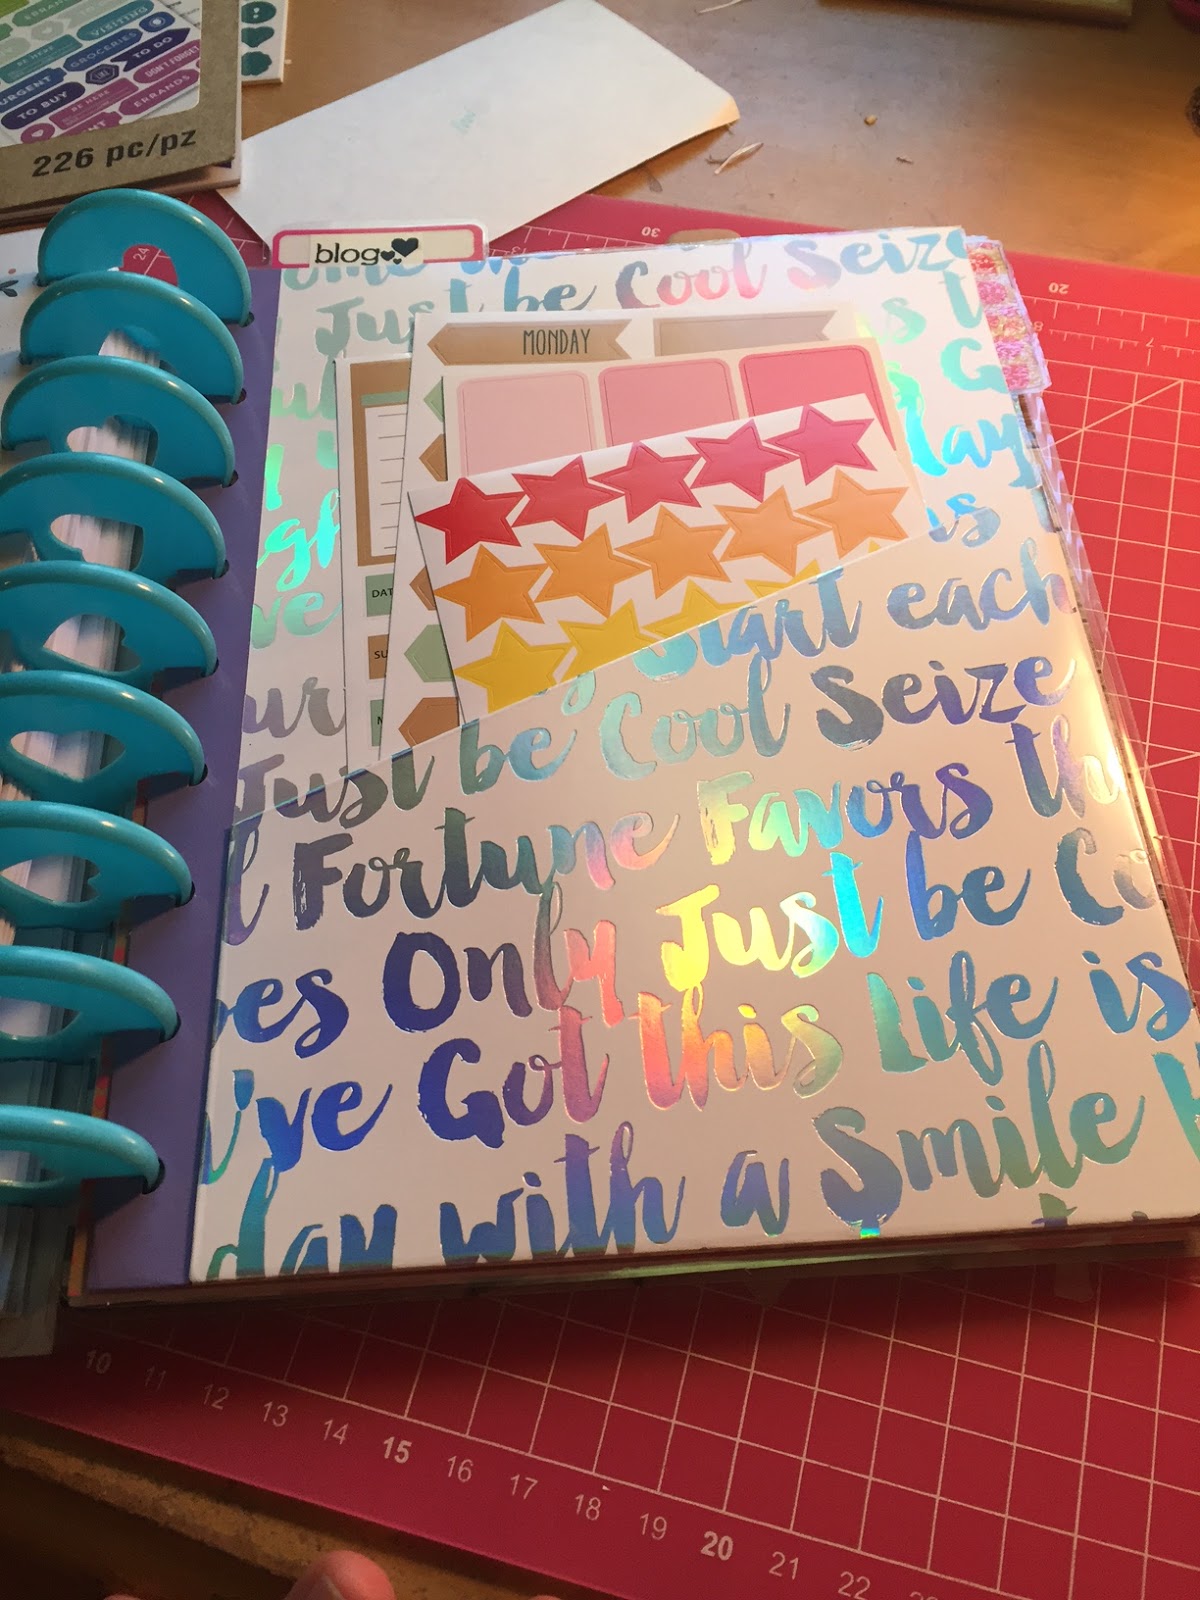 ERRANDS
VISITING
BE HERE
GROCERIES
TO DO
URGENT
DON'T FORGET
TO BUY
BE HERE
ERRANDS
226 pc/pz
24
30
20
8
7
blog
Just be Cool Seize
MONDAY
is
Start each
Just be Cool Seize
Fortune Favors
Only Just be
I've Got this Life is
day with a Smile
10 11 12 13 14 15 16 17 18 19 20 21 22